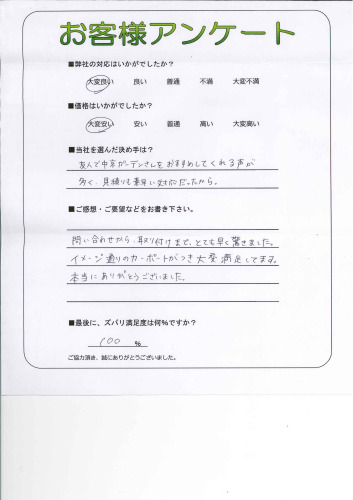 お客様アンケート
■弊社の対応はいかがでしたか？
大変良い 良い 普通 不満 大変不満
■価格はいかがでしたか？
大変安い 安い 普通 高い 大変高い
■当社を選んだ決め手は？
友人で中京ガーデンさんをおすすめしてくれる声が
多く、見積りも素早い対応だったから。
■ご感想・ご要望などをお書き下さい。
問い合わせから、取り付けまで、とても早く驚きました。
イメージ通りのカーポートがつき大変満足してます。
本当にありがとうございました。
■最後に、ズバリ満足度は何％ですか？
100 ％
ご協力頂き、誠にありがとうございました。